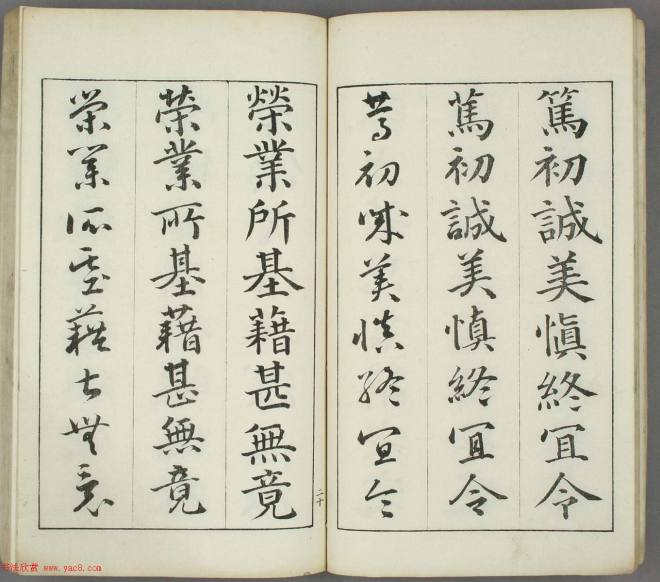 篤初誠美愼終冝令
篤初誠美慎終冝令
篤初誠美慎終宜令
榮業所基藉甚無竟
榮業所基藉甚無竟
榮業所基藉甚無竟
二十
书法欣赏 www.yac8.com